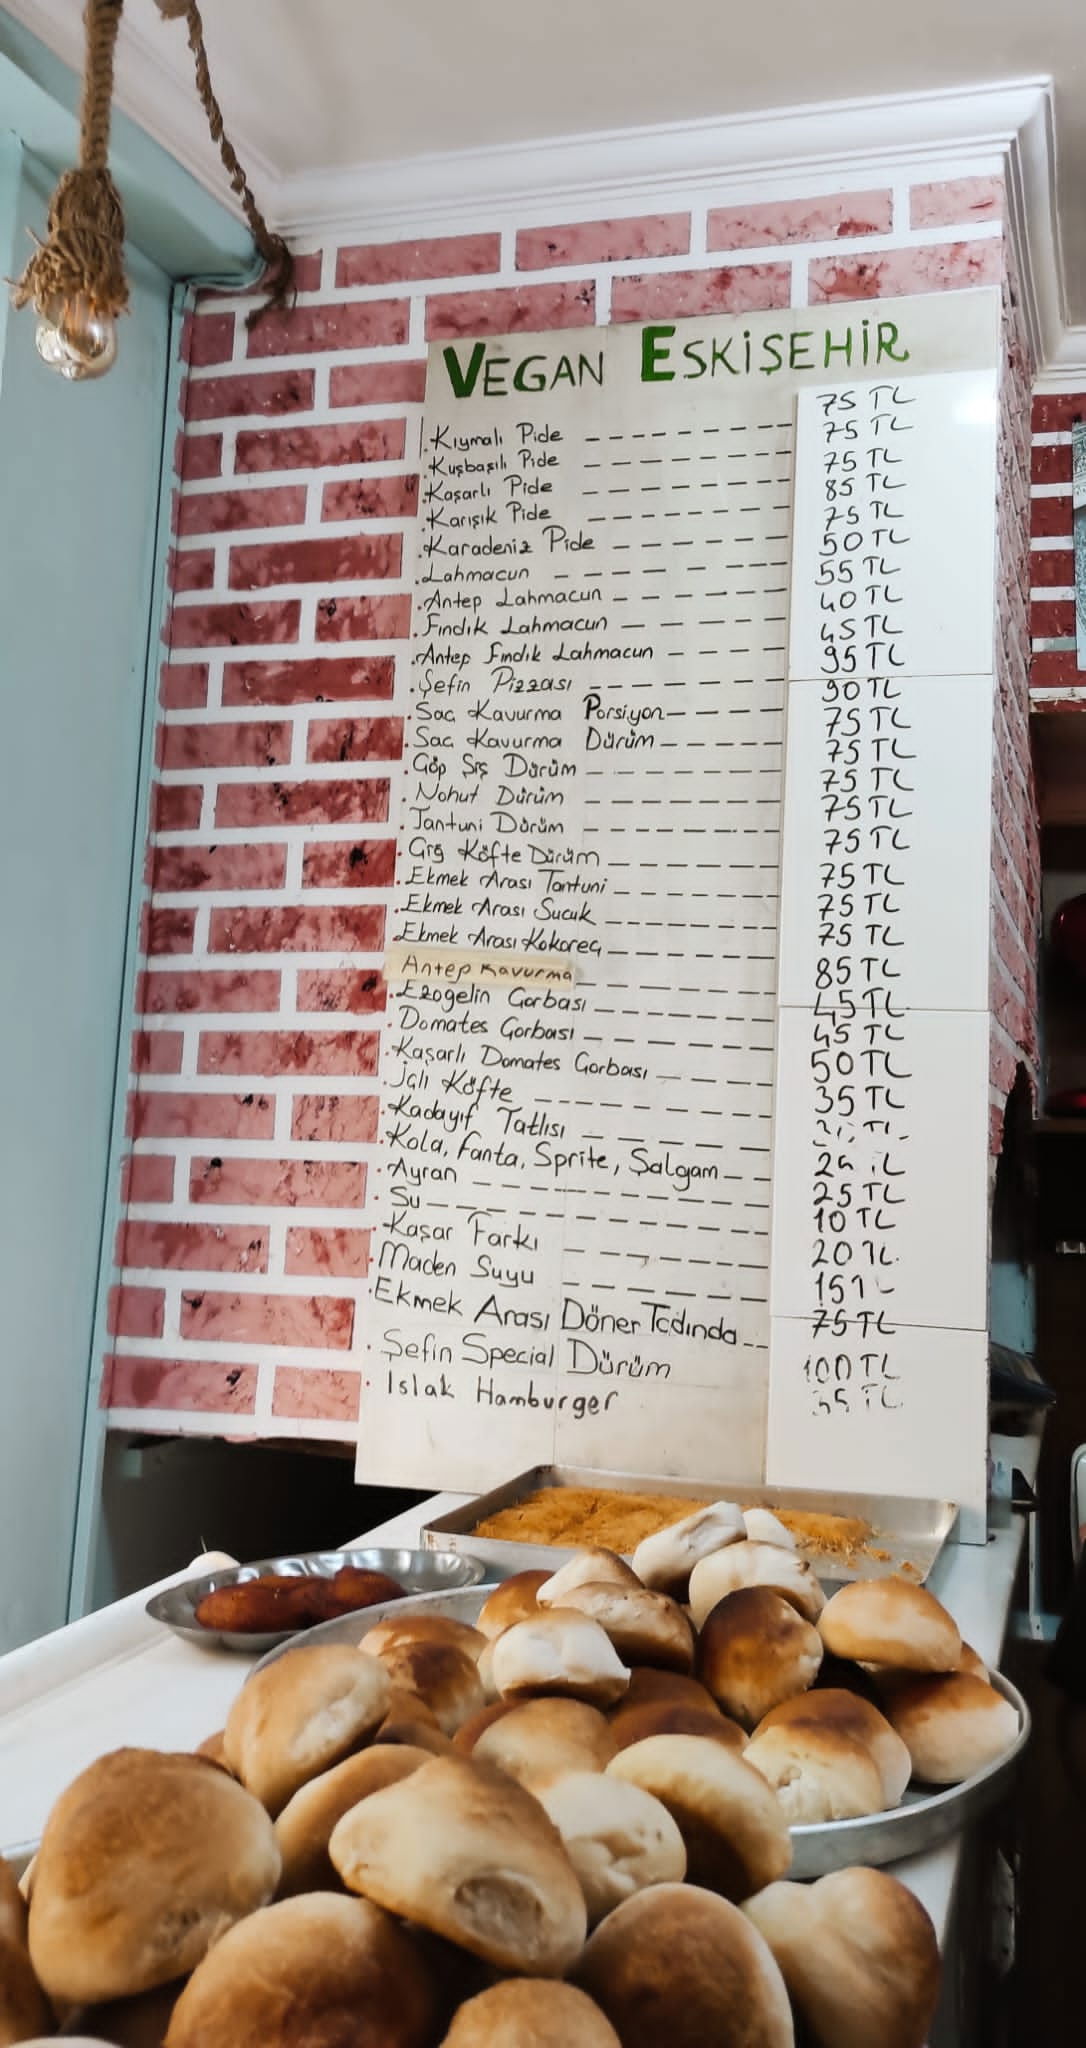 VEGAN ESKİŞEHİR
Kıymalı Pide 75 TL
Kuşbaşılı Pide 75 TL
Kaşarlı Pide 75 TL
Karışık Pide 85 TL
Karadeniz Pide 75 TL
Lahmacun 50 TL
Antep Lahmacun 55 TL
Fındık Lahmacun 40 TL
Antep Fındık Lahmacun 45 TL
Şefin Pizzası 95 TL
Sac Kavurma Porsiyon 90 TL
Sac Kavurma Dürüm 75 TL
Çöp Şiş Dürüm 75 TL
Nohut Dürüm 75 TL
Tantuni Dürüm 75 TL
Çiğ Köfte Dürüm 75 TL
Ekmek Arası Tantuni 75 TL
Ekmek Arası Sucuk 75 TL
Ekmek Arası Kokoreç 75 TL
Antep Kavurma 85 TL
Ezogelin Çorbası 45 TL
Domates Çorbası 45 TL
Kaşarlı Domates Çorbası 50 TL
İçli Köfte 35 TL
Kadayıf Tatlısı TL
Kola, Fanta, Sprite, Şalgam
Ayran 25 TL
Su 10 TL
Kaşar Farkı 20 TL
Maden Suyu 15
Ekmek Arası Döner Tadında 75 TL
Şefin Special Dürüm 100 TL
Islak Hamburger TL